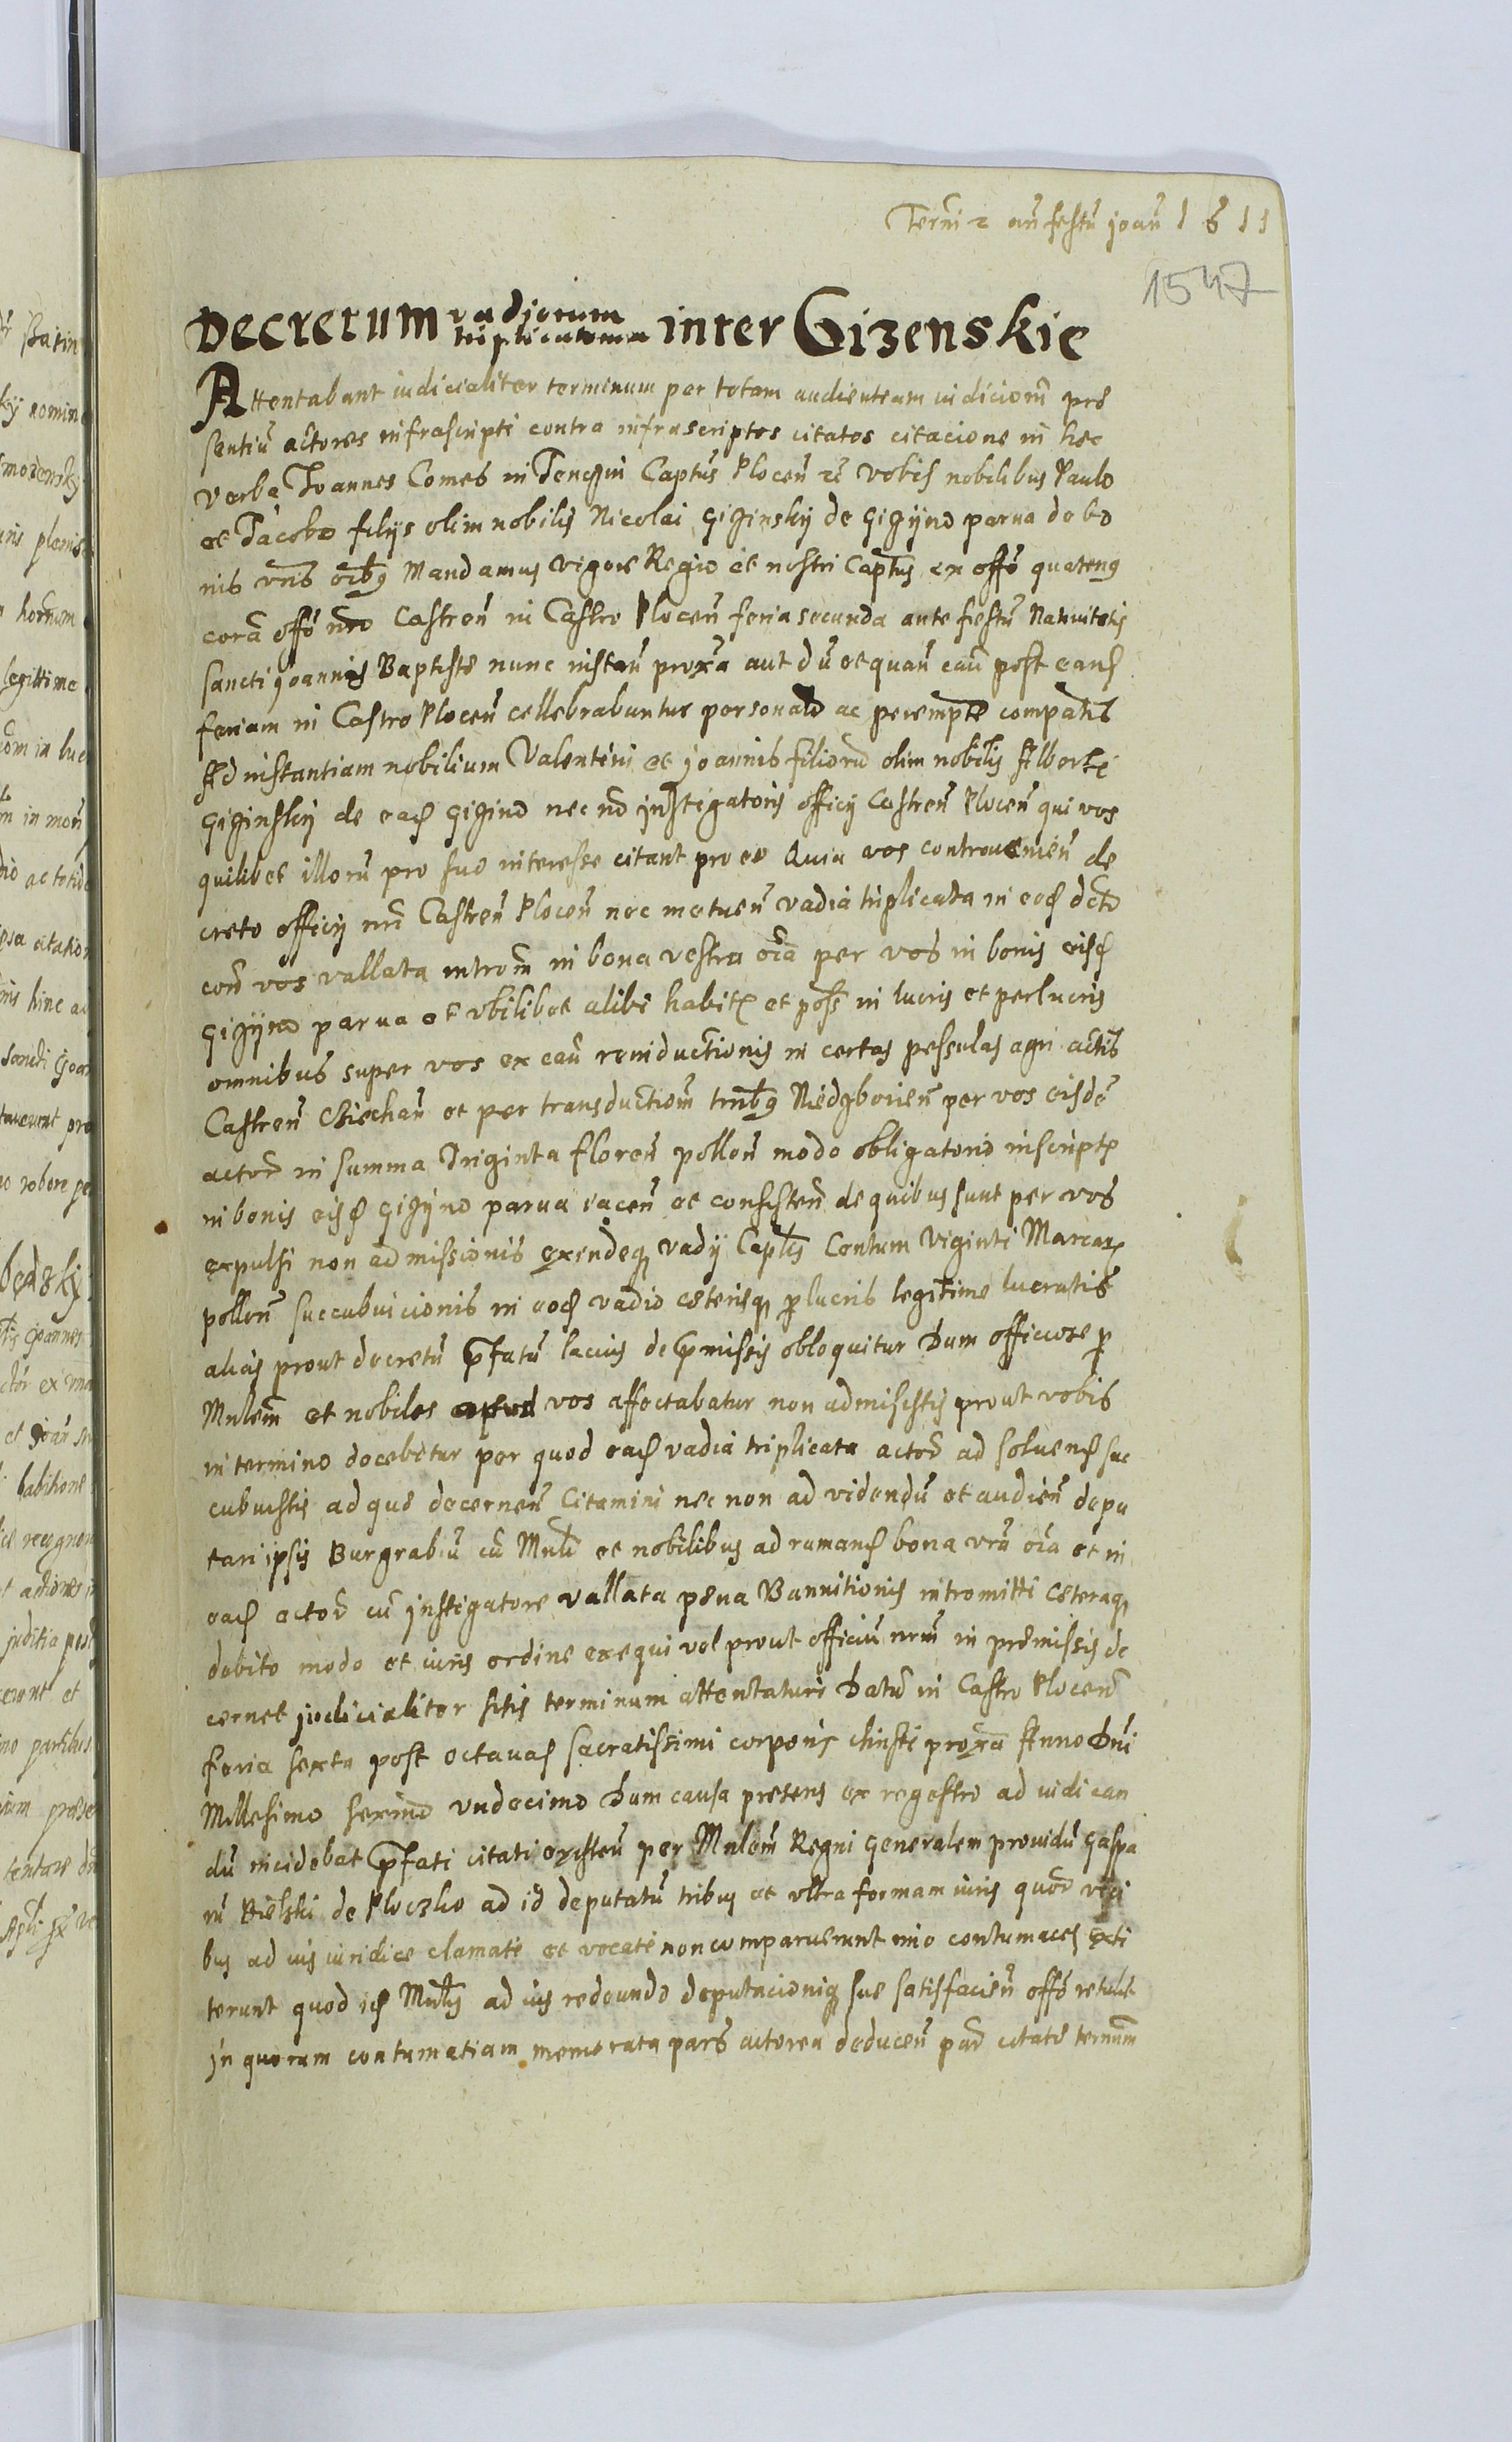 Termi 2 an̄ festū joan̄ 1611
1547
Decretum vadiorum triplicatorum inter Gizenskie
Attentabant iudicialiter terminum per totam audientiam iudiciom̄ prę
sentiū actores infrascripti contra infrascriptos citatos citacione in hęc
verba Joannes Comes in Tenczin Captus Plocen̄ vobis nobilibus Paulo
et Jacobo filijs olim nobilis Nicolai Giginskij de Gigijno parua de bo
nis vris oib9 Mandamus vigore Regio et nostri Captus ex offō quateng
corā offō nrō Castren̄ in Castro Plocen̄ feria secunda ante festū Natiuitatis
sancti Joannis Baptistę nunc instan̄ proxa aut dū et quan̄ cau̅ post eand
feriam in Castro Plocen̄ cellebrabuntur personalr ac perempte compatis
Ad instantiam nobilium Valentini et joannis filiorū olim nobilis Alberti
Giginskij de ead Gigino nec no jnstigatoris officij Castren̄ Plocen̄ qui vos
quilibet illorū pro suo interesse citant pro eo Quia vos controuenien̄ de
creto officij nri Castren̄ Plocen̄ nec metuen̄ vadia triplicata in eod dcto
con vos vallata introm̄ in bona vestra oia per vos in bonis eisd
Gigijno parua et vbilibet alibi habit et poss in lucris et perlucris
omnibus super vos ex cau̅ reinductionis in certas pessulas agri actis
Castren̄ Cziechan̄ et per transductiom̄ trnb9 Niedzborien̄ per vos eisdē
actor in summa Triginta floren̄ pollon̄ modo obligatorio inscript
in bonis eisd Gigijno parua iacen̄ et consisten̄ de quibus sunt per vos
expulsi non admissionis exindeq vadij Captlis Centum viginti Marcar
pollon̄ succubuicionis in eod vadio cęterisq perlucris legitime lucratis
alias prout decretū prfatū lacius de prmissis obloquitur Dum officiose p
Mnlem̄ et nobiles apud vos affectabatur non admisistis prout vobis
in termino docebitur per quod ead vadia triplicata actor ad soluend suc
cubuistis ad quę decernen̄ Citamini nec non ad videndū et audien̄ depu
tari ipsis Burgrabiū cū Mnli et nobilibus ad rumand bona vra oia et in
ead actor cū jnstigatore vallata pęna Bannitionis intromitti Cęteraq
debito modo et iuris ordine exequi vel prout officiū nrm in pręmissis de
cernet judicialiter sitis terminum attentaturi Datū in Castro Plocen̄
feria sexta post octauas sacratissimi corporis christi proxa Anno Dni
Millesimo sexino vndecimo Dum causa pręsens ex regestro ad iudican
dū incidebat prfati citati existen̄ per Mnlem̄ Regni Generalem prouidū Gaspa
rū Bielski de Ploczko ad id deputatū tribus et vltra formam iuris quor vici
bus ad ius iuridice clamati et vocati non comparuerunt imo contumaces exti
terunt quod id Mnlis ad ius redeundo deputacioniq suę satisfacien̄ offō retulit
jn quorum contumatiam memorata pars actorea deducen̄ par citatę termm